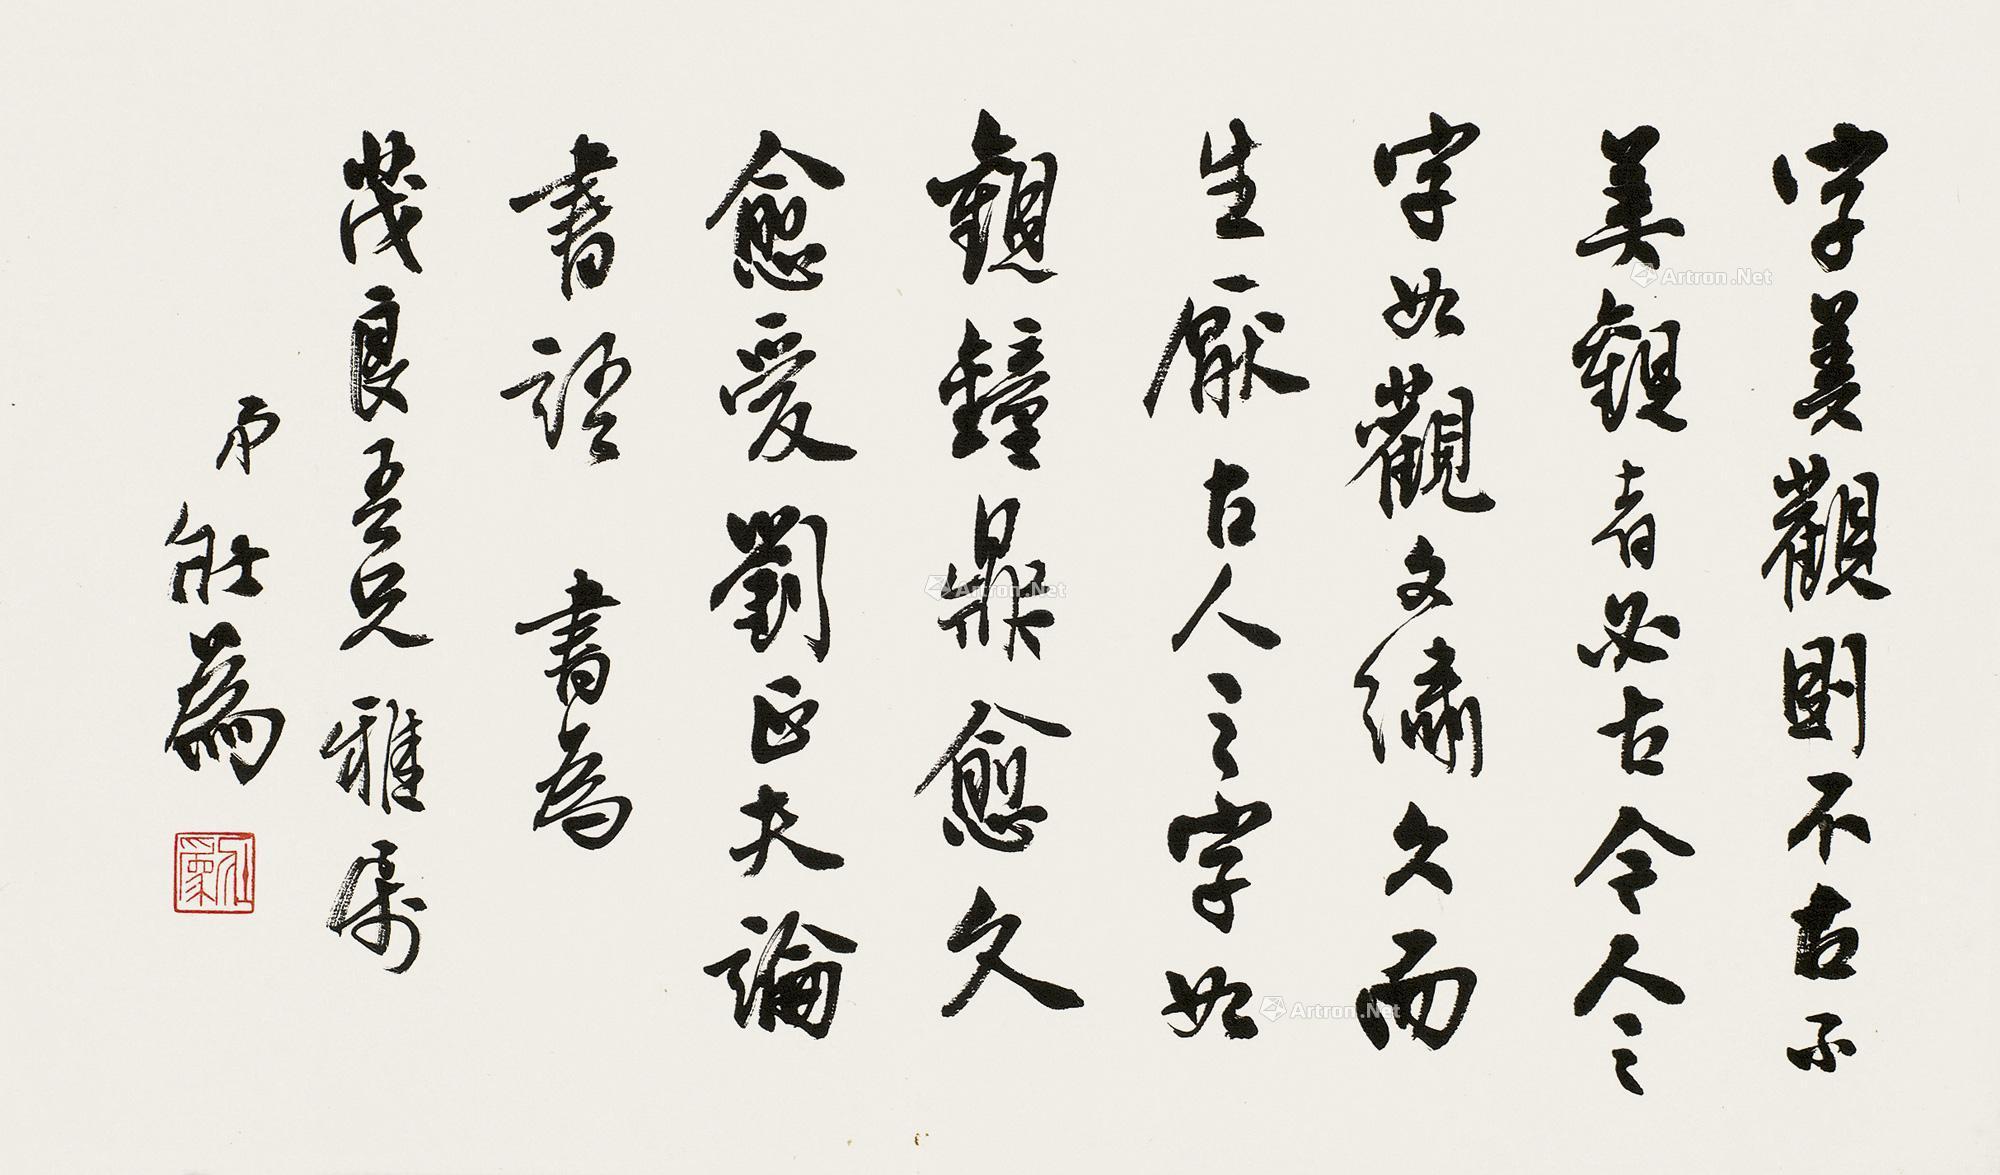 字美觀則不古不
美觀者必古今人之
字如觀文繡久而
生厭古人之字如
觀鐘鼎愈久
愈愛劉正夫論
書語 書為
茂良吾兄雅屬
弟能為
Artron.Net
Artron.Net
Artron.Net